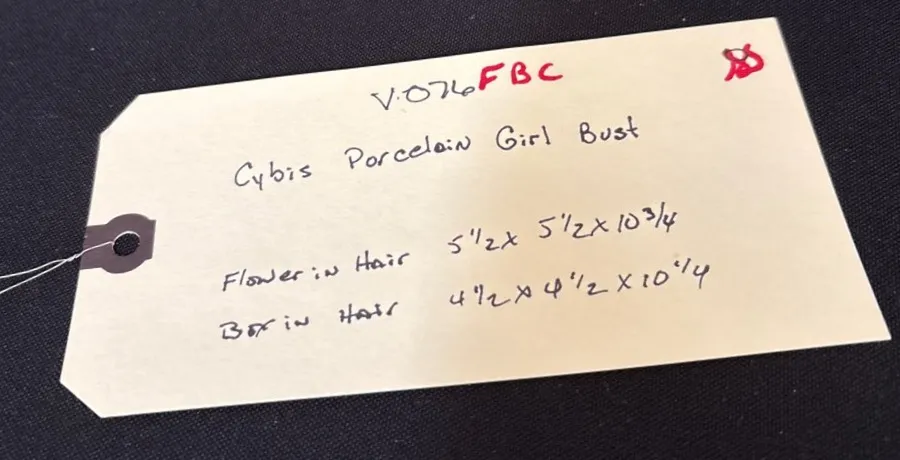 V.076 FBC
Cybis Porcelain Girl Bust
Flower in Hair 5 1/2 x 5 1/2 x 10 3/4
in Hair 4 1/2 x 4 1/2 x 10 1/4